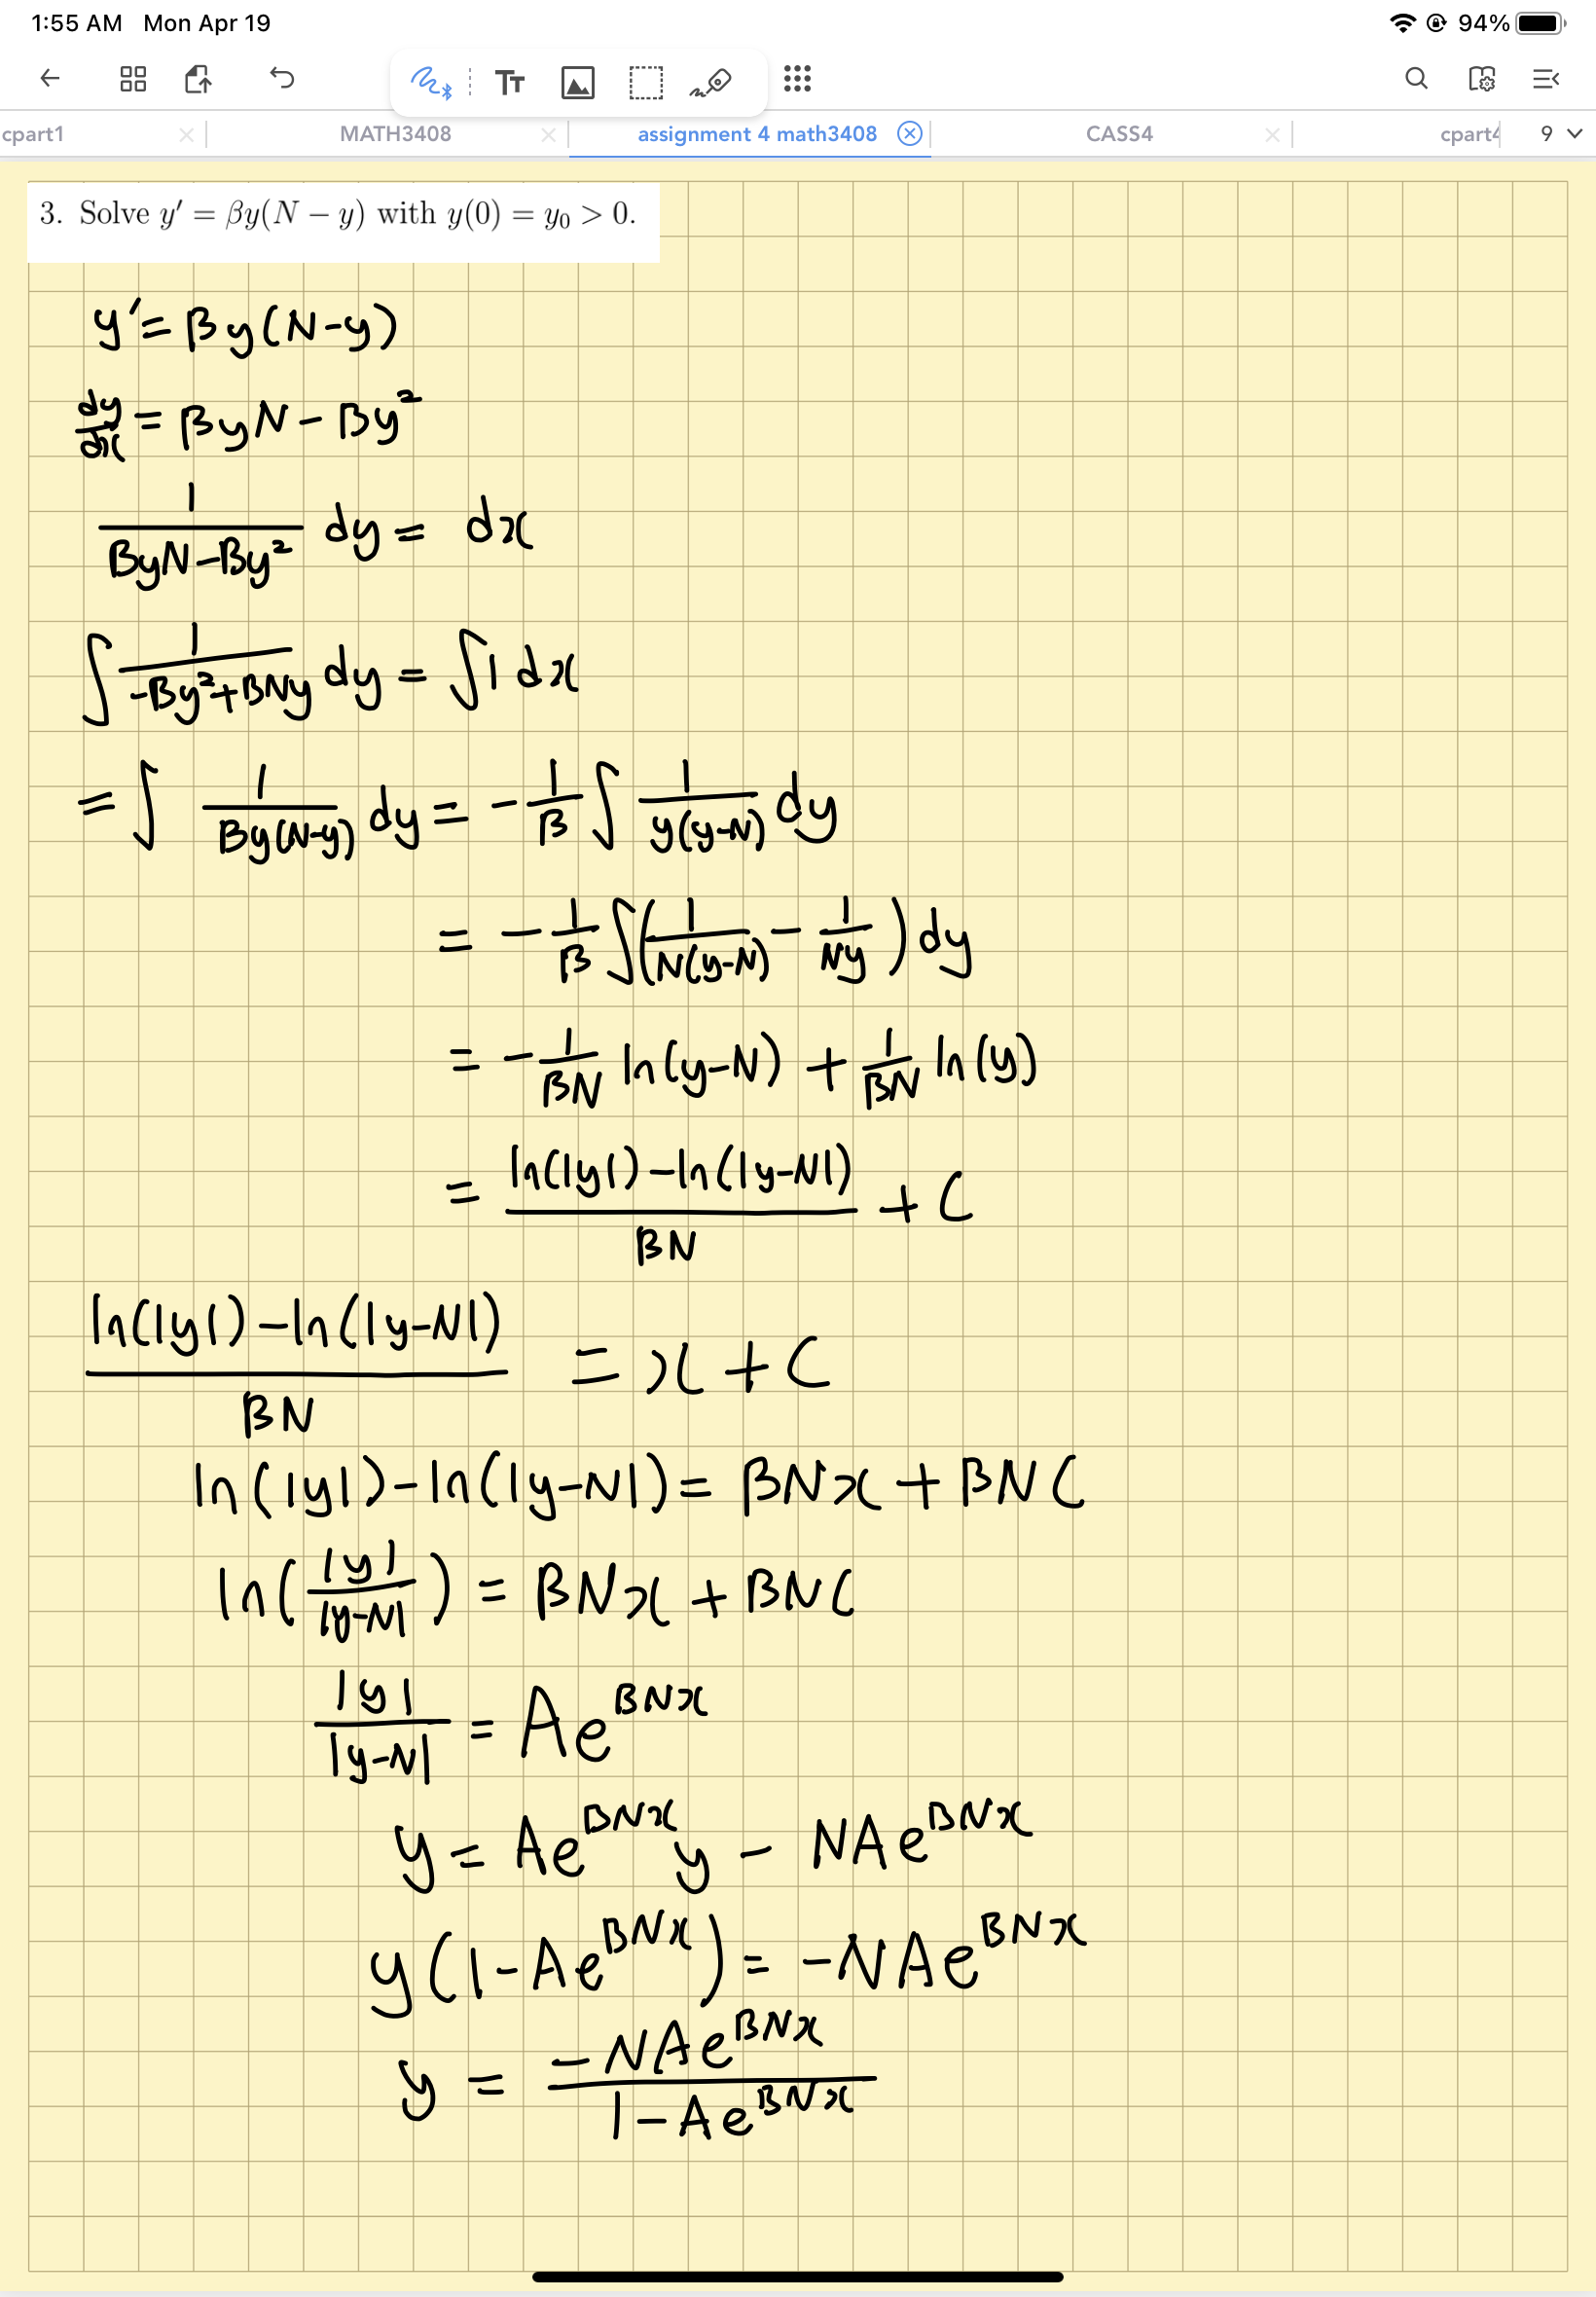 1:55 AM Mon Apr 19 94%
cpart1 MATH3408 assignment 4 math3408 CASS4 cpart4 9
3. Solve y′ = βy(N − y) with y(0) = y₀ > 0.
y′ = By(N-y)
dy/dx = ByN - By²
1/(ByN-By²) dy = dx
∫ 1/(-By²+BNy) dy = ∫ 1 dx
= ∫ 1/(By(N-y)) dy = -1/B ∫ 1/(y(y-N)) dy
= -1/B ∫ (1/(N(y-N)) - 1/(Ny)) dy
= -1/(BN) ln(y-N) + 1/(BN) ln(y)
= (ln(|y|) - ln(|y-N|))/(BN) + C
(ln(|y|) - ln(|y-N|))/(BN) = x + C
ln(|y|) - ln(|y-N|) = BNx + BNC
ln(|y|/|y-N|) = BNx + BNC
|y|/|y-N| = Ae^(BNx)
y = Ae^(BNx) y - NAe^(BNx)
y(1-Ae^(BNx)) = -NAe^(BNx)
y = -NAe^(BNx)/(1-Ae^(BNx))